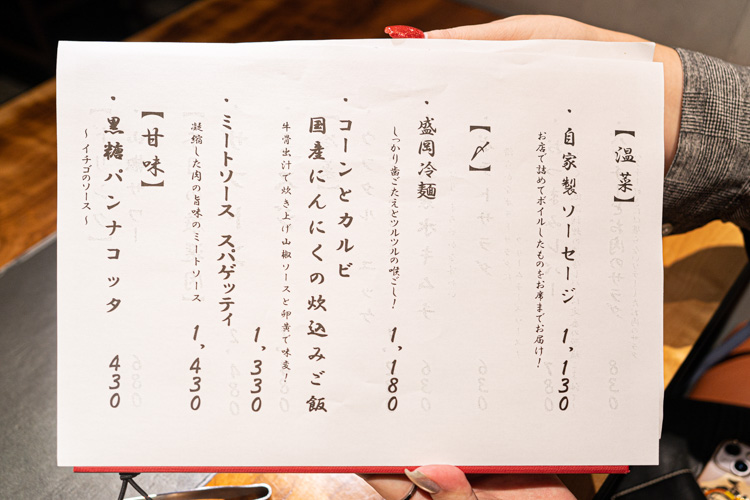 【温菜】
・自家製ソーセージ 1,130
お店で詰めてボイルしたものをお席までお届け！
【〆】
・盛岡冷麺
しっかり歯ごたえとツルツルの喉ごし！ 1,180
・コーンとカルビ
国産にんにくの炊込みご飯
牛骨出汁で炊き上げ山椒ソースと卵黄で味変！ 1,330
・ミートソース スパゲッティ
凝縮した肉の旨味のミートソース 1,430
【甘味】
・黒糖パンナコッタ 430
～イチゴのソース～